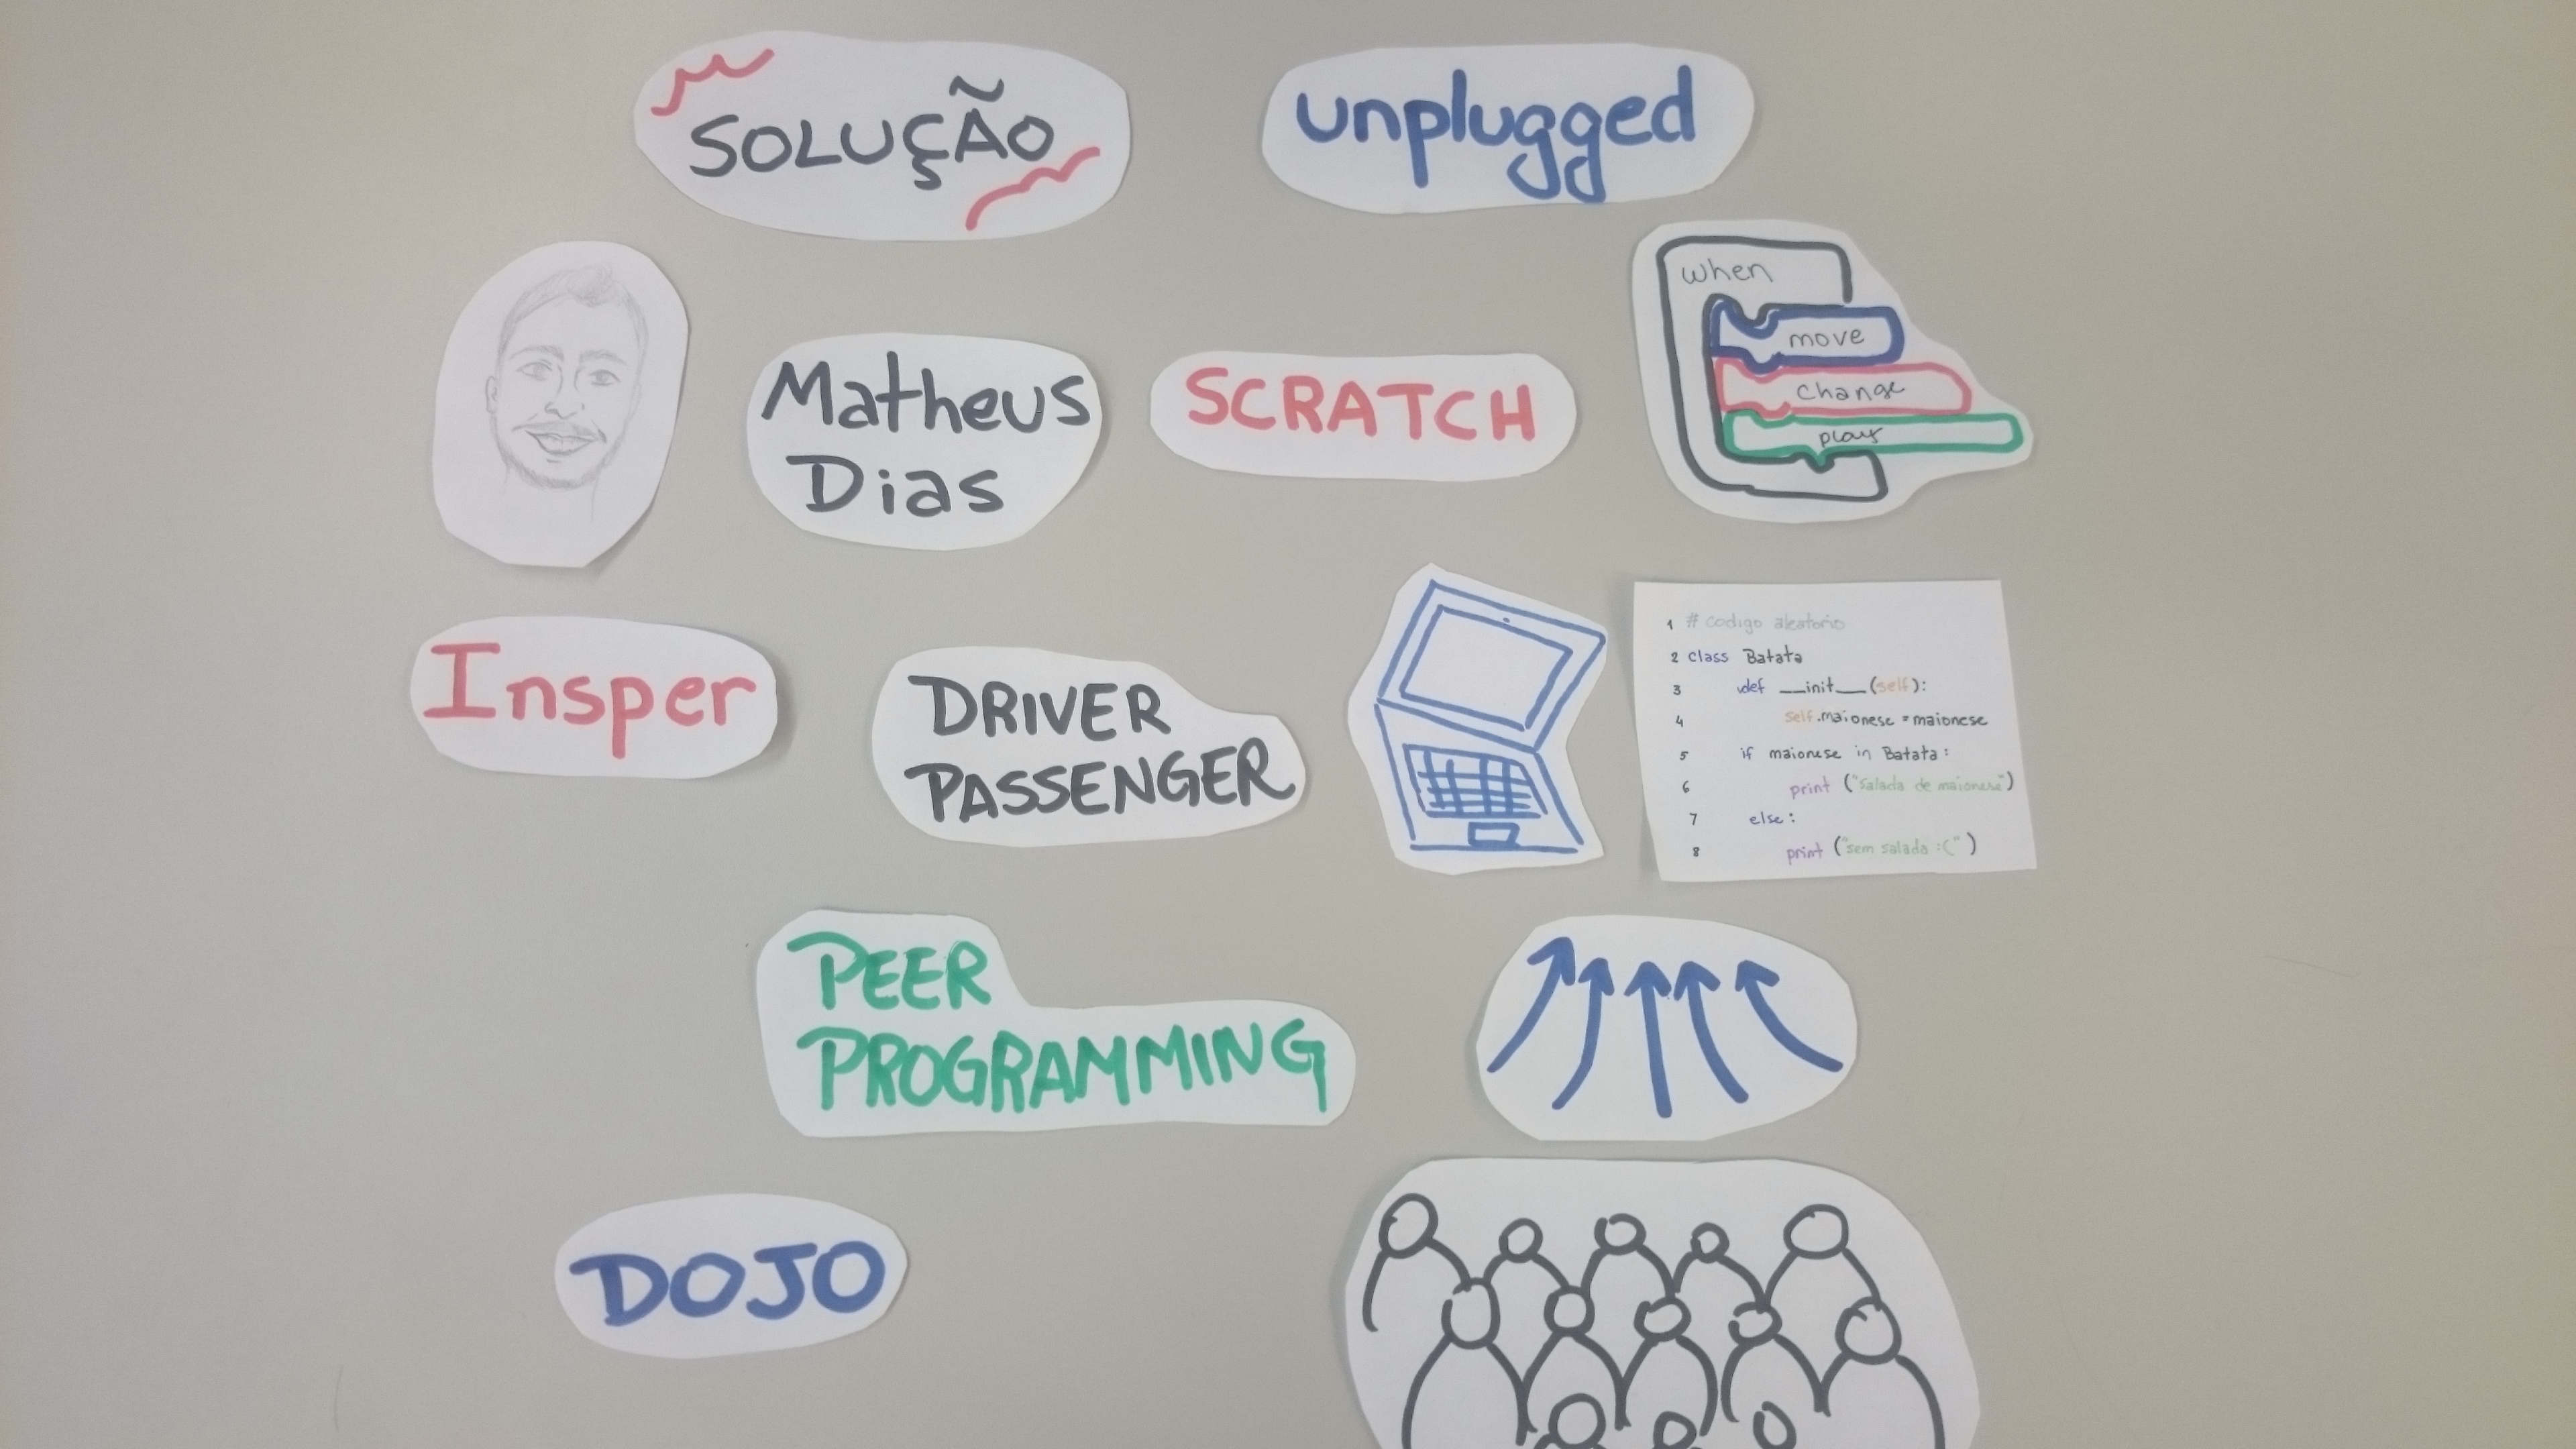 SOLUÇÃO
unplugged
when
move
change
play
Matheus
Dias
SCRATCH
Insper
DRIVER
PASSENGER
1 # codigo aleatorio
2 class Batata
3 def __init__(self):
4 self.maionese = maionese
5 if maionese in Batata:
6 print ("Salada de maionese")
7 else:
8 print ("sem salada :(")
PEER
PROGRAMMING
DOJO